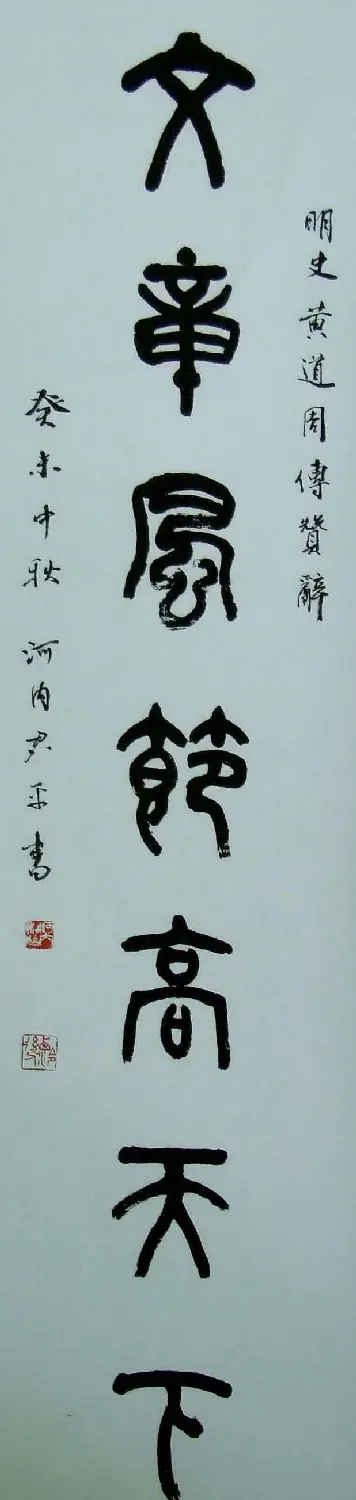 明史黄道周傳贊辭
文章風節高天下
癸未中秋河内君平書